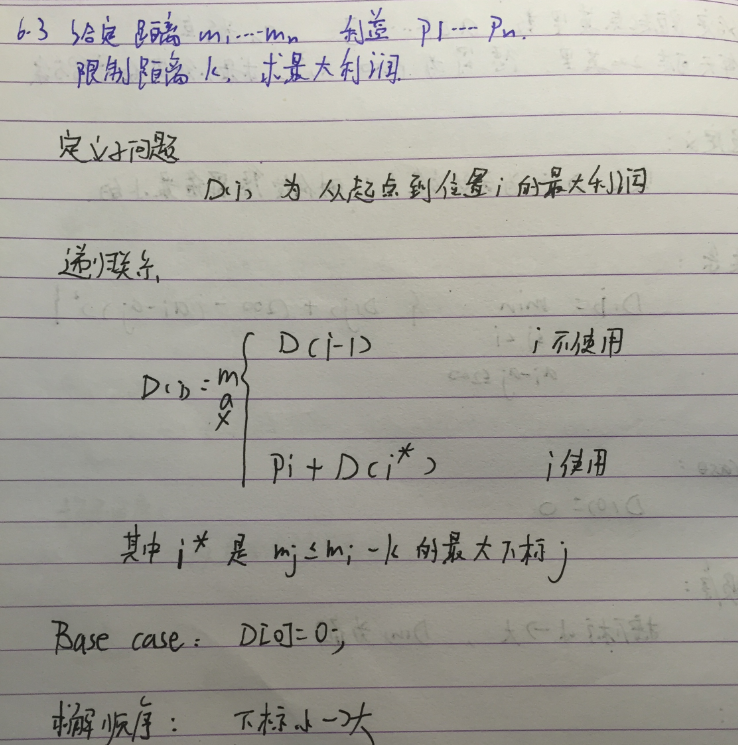 6.3 给定 距离 m1……mn 利益 P1…… Pn.
限制距离 k, 求最大利润
定义子问题
D(i) 为 从起点到位置 i 的最大利润
递归联系,
D(i) = max { D(i-1) i 不使用
Pi + D(i*) i 使用
其中 i* 是 mj ≤ mi - k 的最大下标 j
Base case: D[0]=0;
求解顺序: 下标小→大